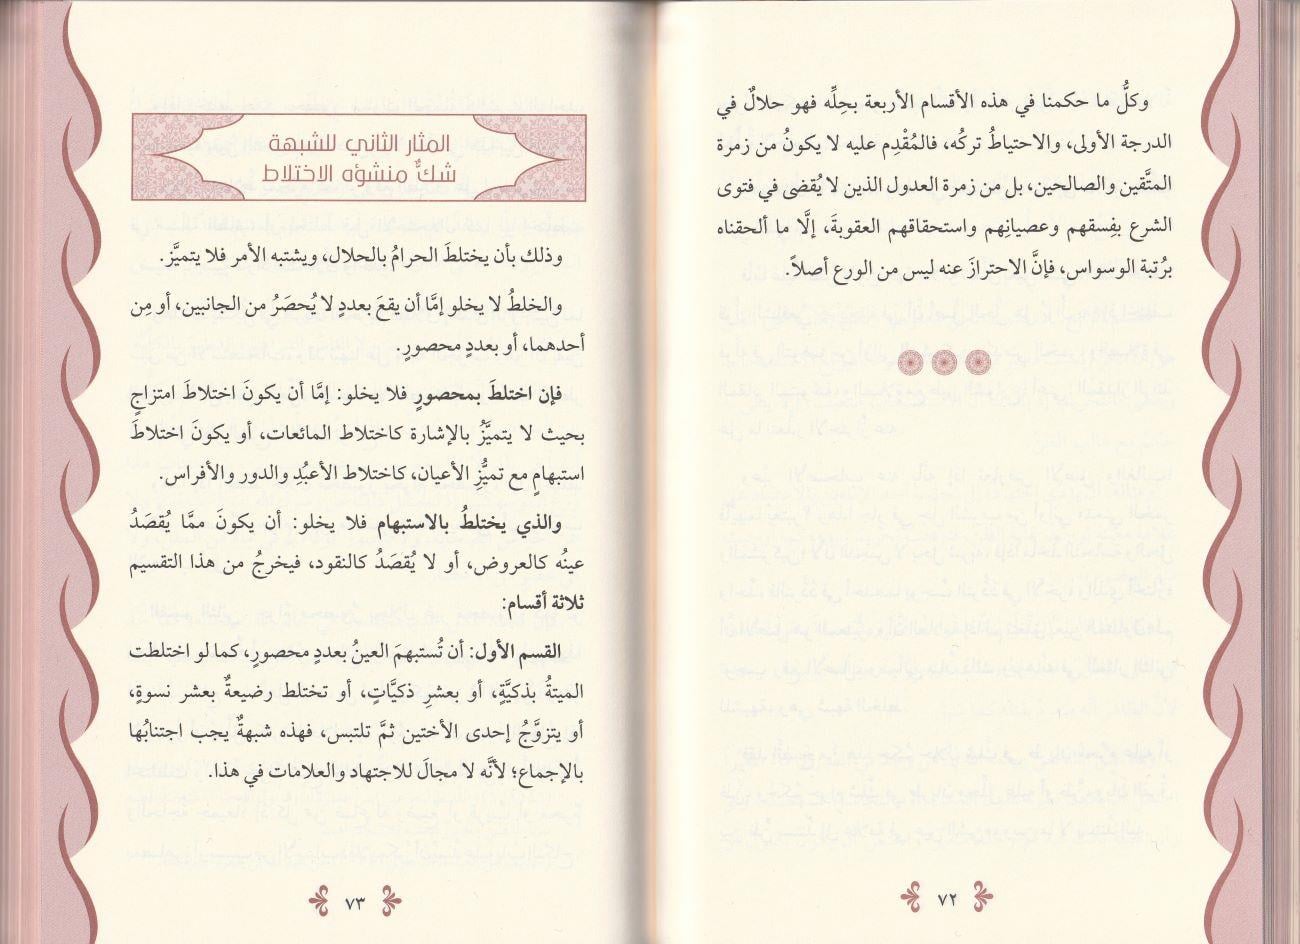 وكلُّ ما حكمنا في هذه الأقسام الأربعة بحِلِّه فهو حلالٌ في
الدرجة الأولى، والاحتياطُ تركُه، فالمُقْدِم عليه لا يكونُ من زمرة
المتَّقين والصالحين، بل من زمرة العدول الذين لا يُقضى في فتوى
الشرع بفِسقهم وعصيانِهم واستحقاقهم العقوبةَ، إلَّا ما ألحقناه
برُتبة الوسواس، فإنَّ الاحترازَ عنه ليس من الورع أصلاً.
٧٢
المثار الثاني للشبهة
شكٌّ منشؤه الاختلاط
وذلك بأن يختلطَ الحرامُ بالحلال، ويشتبه الأمر فلا يتميَّز.
والخلطُ لا يخلو إمَّا أن يقعَ بعددٍ لا يُحصَرُ من الجانبين، أو مِن
أحدهما، أو بعددٍ محصورٍ.
فإن اختلطَ بمحصورٍ فلا يخلو: إمَّا أن يكونَ اختلاطَ امتزاجٍ
بحيث لا يتميَّزُ بالإشارة كاختلاط المائعات، أو يكونَ اختلاطَ
استبهامٍ مع تميُّزِ الأعيان، كاختلاط الأعبُدِ والدور والأفراس.
والذي يختلطُ بالاستبهام فلا يخلو: أن يكونَ ممَّا يُقصَدُ
عينُه كالعروض، أو لا يُقصَدُ كالنقود، فيخرجُ من هذا التقسيم
ثلاثة أقسام:
القسم الأول: أن تُستبهمَ العينُ بعددٍ محصورٍ، كما لو اختلطت
الميتةُ بذكيَّةٍ، أو بعشرِ ذكيَّاتٍ، أو تختلط رضيعةٌ بعشر نسوةٍ،
أو يتزوَّجُ إحدى الأختين ثمَّ تلتبس، فهذه شبهةٌ يجب اجتنابُها
بالإجماع؛ لأنَّه لا مجالَ للاجتهاد والعلامات في هذا.
٧٣